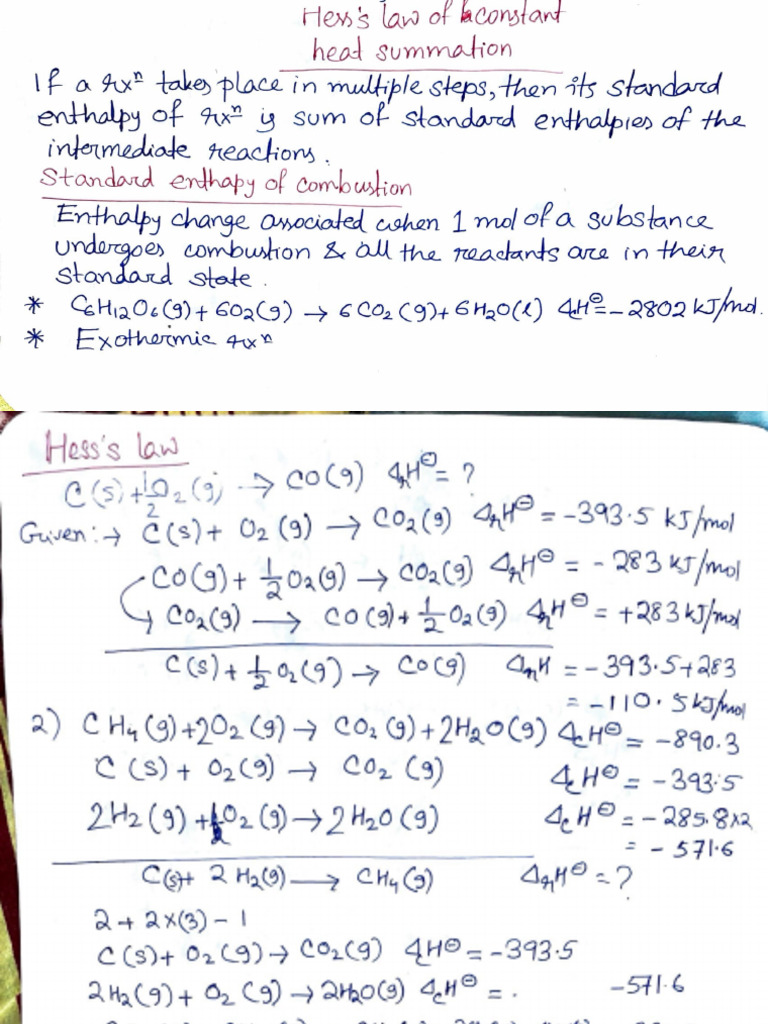 Hess's law of constant
heat summation
If a rxⁿ takes place in multiple steps, then its standard
enthalpy of rxⁿ is sum of standard enthalpies of the
intermediate reactions.
Standard enthapy of combustion
Enthalpy change associated when 1 mol of a substance
undergoes combustion & all the reactants are in their
standard state.
* C6H12O6(g) + 6O2(g) → 6CO2(g) + 6H2O(l) ΔcH⊖ = -2802 kJ/mol.
* Exothermic rxⁿ
Hess's law
C(s) + 1/2 O2(g) → CO(g) ΔrH⊖ = ?
Given:→ C(s) + O2(g) → CO2(g) ΔrH⊖ = -393.5 kJ/mol
CO(g) + 1/2 O2(g) → CO2(g) ΔrH⊖ = -283 kJ/mol
CO2(g) → CO(g) + 1/2 O2(g) ΔrH⊖ = +283 kJ/mol
C(s) + 1/2 O2(g) → CO(g) ΔrH = -393.5+283
= -110.5 kJ/mol
2) CH4(g) + 2O2(g) → CO2(g) + 2H2O(g) ΔcH⊖ = -890.3
C(s) + O2(g) → CO2(g) ΔcH⊖ = -393.5
2H2(g) + O2(g) → 2H2O(g) ΔcH⊖ = -285.8x2
= -571.6
C(s) + 2H2(g) → CH4(g) ΔrH⊖ = ?
2 + 2x(3) - 1
C(s) + O2(g) → CO2(g) ΔcH⊖ = -393.5
2H2(g) + O2(g) → 2H2O(g) ΔcH⊖ = . -571.6